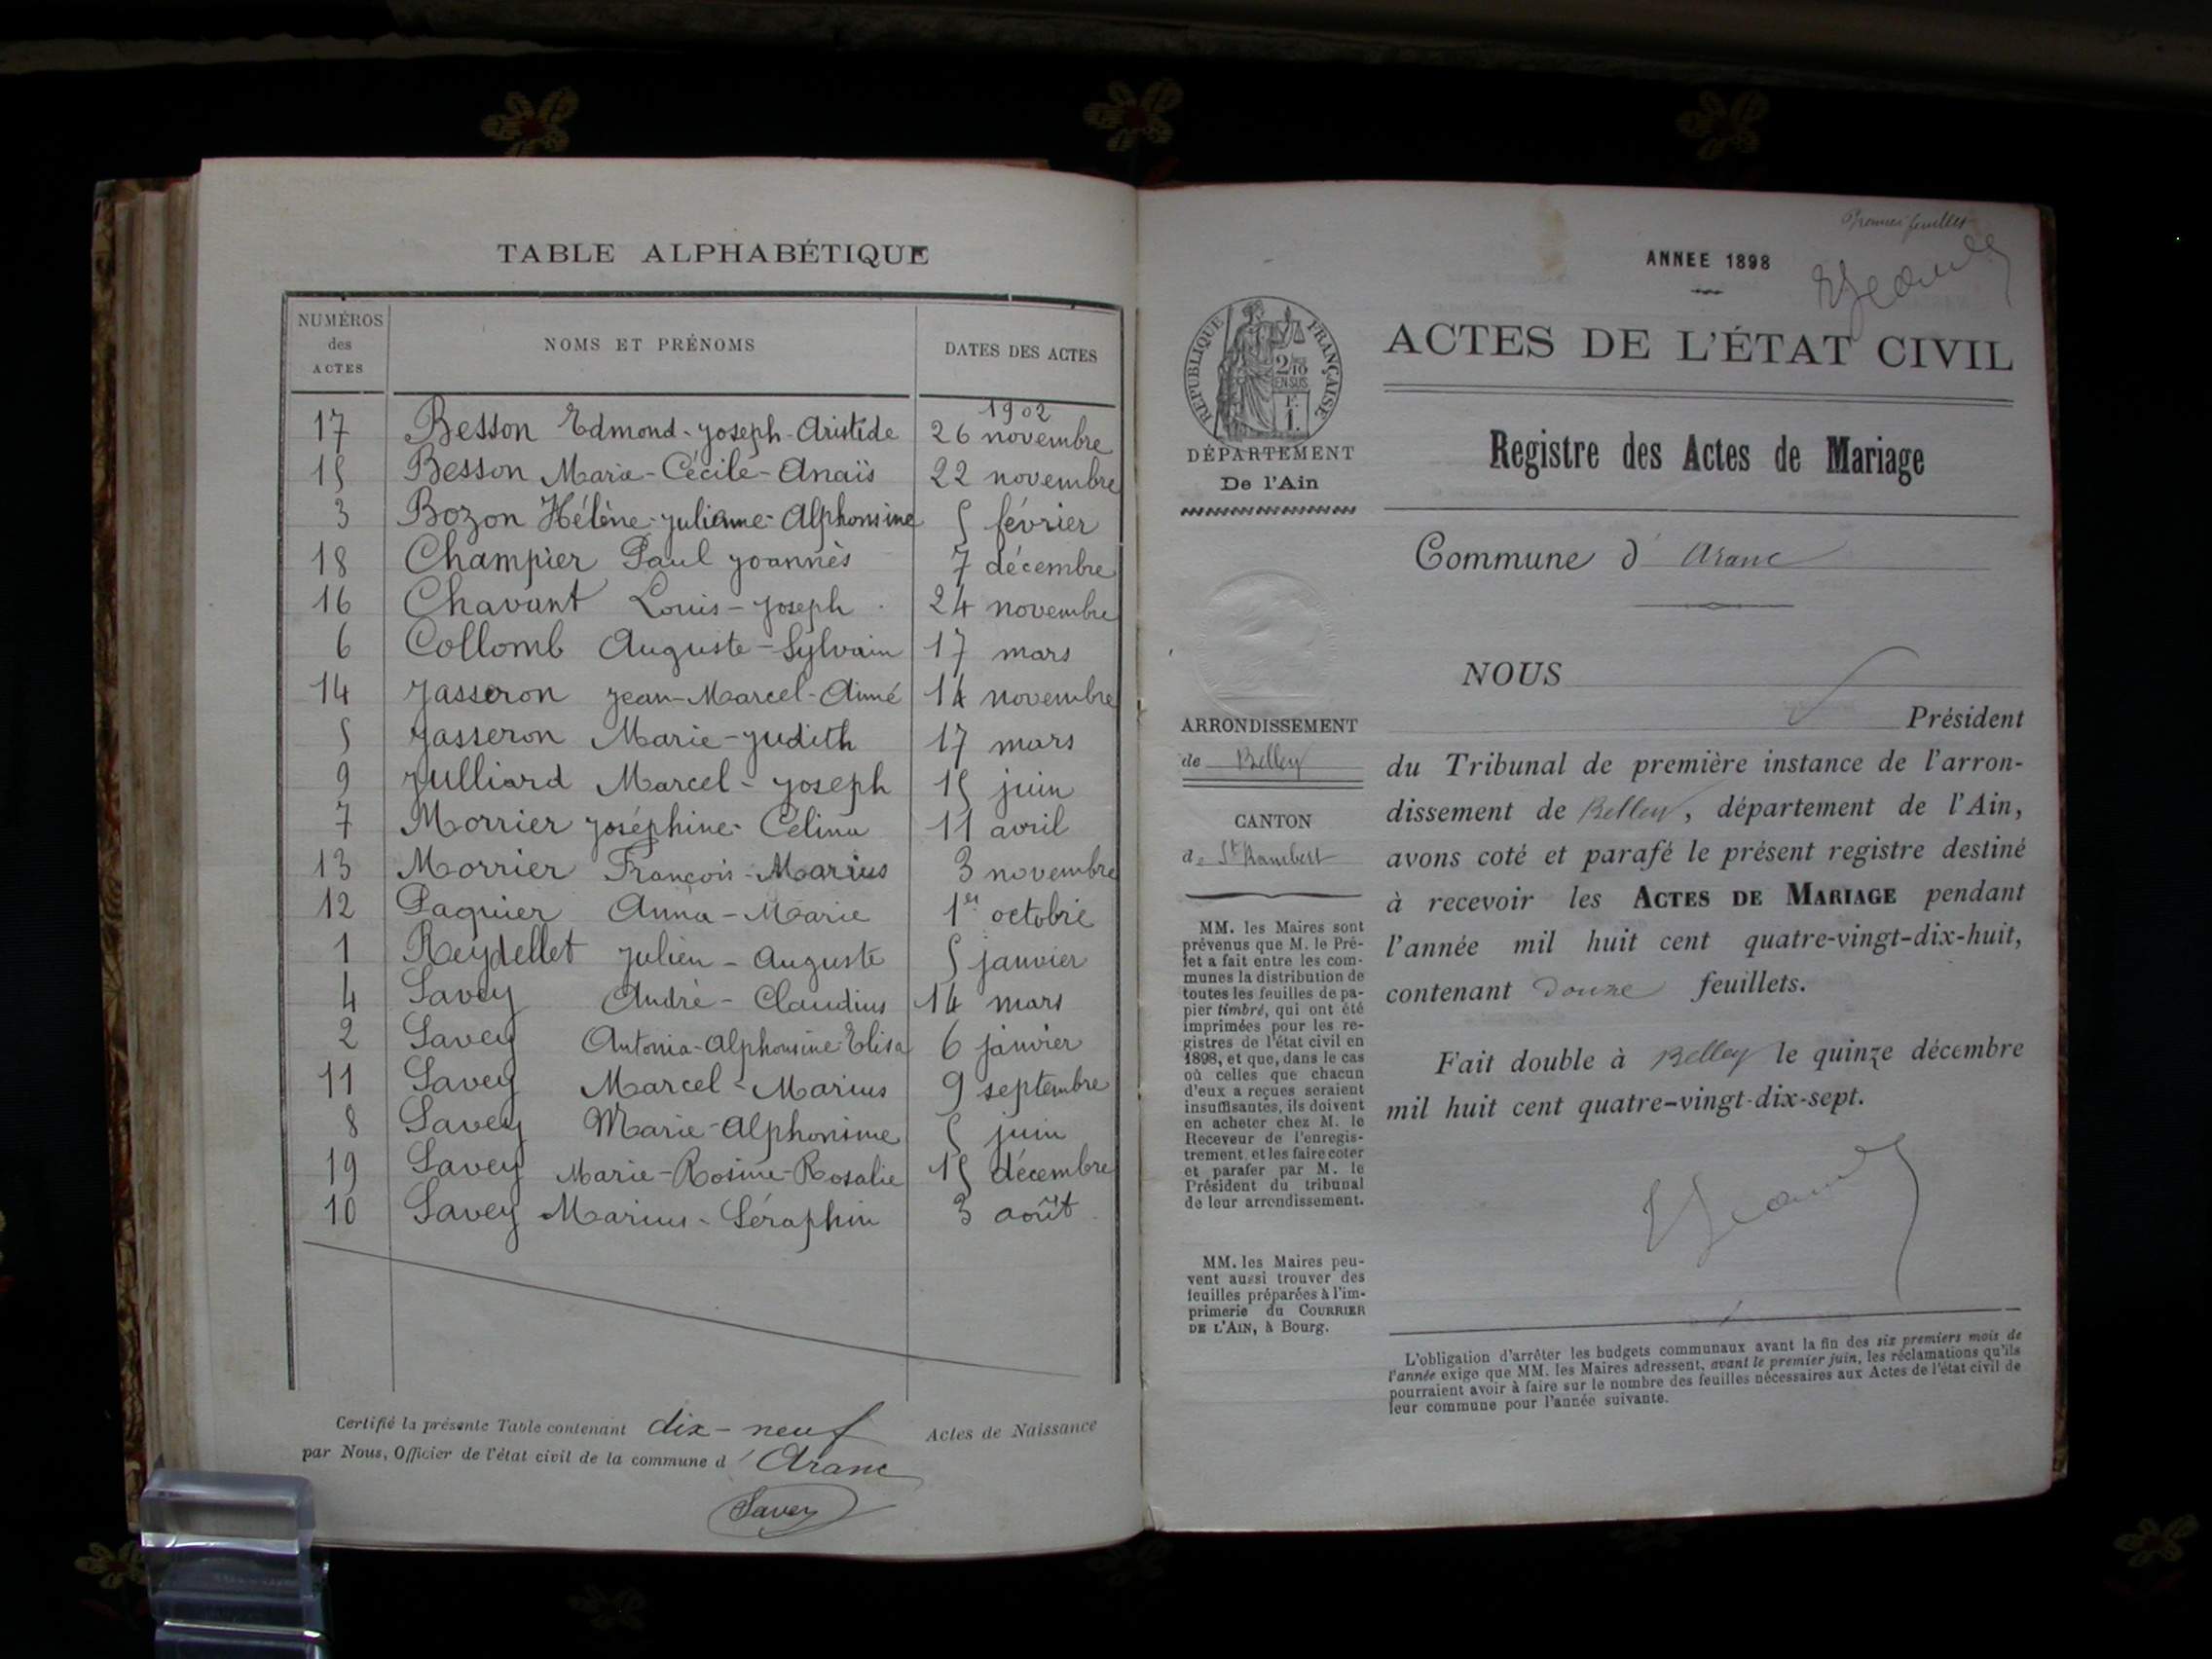 TABLE ALPHABÉTIQUE
NUMÉROS des ACTES NOMS ET PRÉNOMS DATES DES ACTES
1902
17 Besson Edmond-Joseph-Aristide 26 novembre
15 Besson Marie-Cécile-Anaïs 22 novembre
3 Bozon Hélène-Julienne-Alphonsine 5 février
18 Champier Paul Joannès 7 décembre
16 Chavant Louis-Joseph 24 novembre
6 Collomb Auguste-Sylvain 17 mars
14 Jasseron Jean-Marcel-Aimé 14 novembre
5 Jasseron Marie-Judith 17 mars
9 Julliard Marcel-Joseph 15 juin
7 Morrier Joséphine-Célina 11 avril
13 Morrier François-Marius 3 novembre
12 Paquier Anna-Marie 1er octobre
1 Reydellet Julien-Auguste 5 janvier
4 Savey André-Claudius 14 mars
2 Savey Antonia-Alphonsine-Elisa 6 janvier
11 Savey Marcel-Marius 9 septembre
8 Savey Marie-Alphonsine 5 juin
19 Savey Marie-Rosine-Rosalie 15 décembre
10 Savey Marius-Séraphin 3 août
Certifié la présente Table contenant dix-neuf Actes de Naissance
par Nous, Officier de l'état civil de la commune d'Aranc
Savey
Premier feuillet
ANNEE 1898
RÉPUBLIQUE FRANÇAISE
2/10
EN SUS
F.
1.
DÉPARTEMENT
De l'Ain
ARRONDISSEMENT
de Belley
CANTON
de St Rambert
MM. les Maires sont
prévenus que M. le Pré-
fet a fait entre les com-
munes la distribution de
toutes les feuilles de pa-
pier timbré, qui ont été
imprimées pour les re-
gistres de l'état civil en
1898, et que, dans le cas
où celles que chacun
d'eux a reçues seraient
insuffisantes, ils doivent
en acheter chez M. le
Receveur de l'enregis-
trement, et les faire coter
et parafer par M. le
Président du tribunal
de leur arrondissement.
MM. les Maires peu-
vent aussi trouver des
feuilles préparées à l'im-
primerie du COURRIER
DE L'AIN, à Bourg.
ACTES DE L'ÉTAT CIVIL
Registre des Actes de Mariage
Commune d'Aranc
NOUS
Président
du Tribunal de première instance de l'arron-
dissement de Belley, département de l'Ain,
avons coté et parafé le présent registre destiné
à recevoir les ACTES DE MARIAGE pendant
l'année mil huit cent quatre-vingt-dix-huit,
contenant douze feuillets.
Fait double à Belley le quinze décembre
mil huit cent quatre-vingt-dix-sept.
L'obligation d'arrêter les budgets communaux avant la fin des six premiers mois de
l'année exige que MM. les Maires adressent, avant le premier juin, les réclamations qu'ils
pourraient avoir à faire sur le nombre des feuilles nécessaires aux Actes de l'état civil de
leur commune pour l'année suivante.